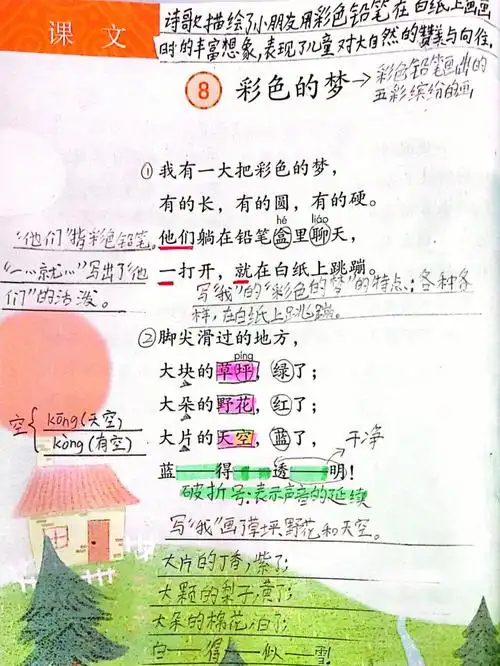 课文
诗歌描绘了小朋友用彩色铅笔在白纸上画画
时的丰富想象,表现了儿童对大自然的赞美与向往。
8 彩色的梦→彩色铅笔画出的
五彩缤纷的画
①我有一大把彩色的梦,
有的长,有的圆,有的硬。
hé liáo
“他们”指彩色铅笔。 他们躺在铅笔盒里聊天,
“一…就…”写出了他
们”的活泼。
一打开,就在白纸上跳蹦。
写“我”的“彩色的梦”的特点:各种各
样,在白纸上跳蹦。
②脚尖滑过的地方,
píng
大块的草坪,绿了;
大朵的野花,红了;
空{kōng(天空)
kòng(有空)
大片的天空,蓝了, 干净
蓝——得——透——明!
破折号:表示声音的延续
写“我”画了草坪、野花和天空。
大片的丁香,紫了;
大颗的梨子,黄了;
大朵的棉花,白了;
白——得——似——雪!